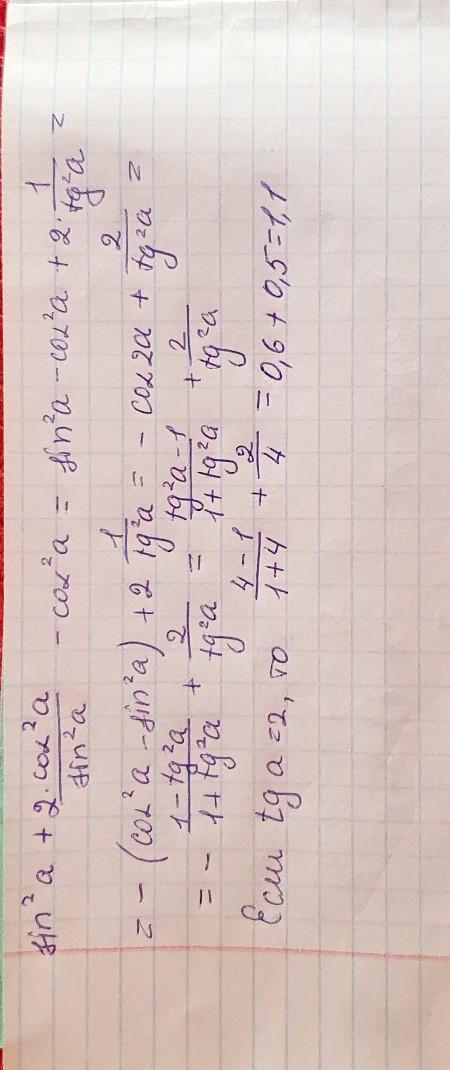 sin²a + 2·cos²a/sin²a - cos²a = sin²a - cos²a + 2·1/tg²a =
= -(cos²a - sin²a) + 2 1/tg²a = - cos2a + 2/tg²a =
= - 1-tg²a/1+tg²a + 2/tg²a = tg²a-1/1+tg²a + 2/tg²a
Если tg a = 2, то 4-1/1+4 + 2/4 = 0,6 + 0,5 = 1,1